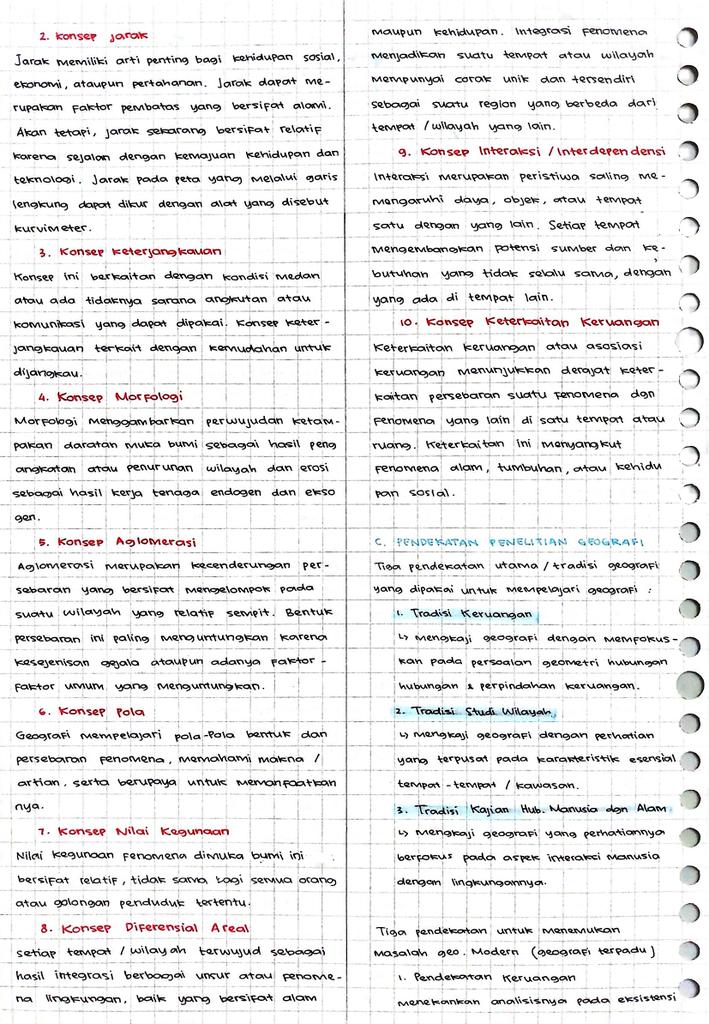 2. Konsep Jarak
Jarak memiliki arti penting bagi kehidupan sosial,
ekonomi, ataupun pertahanan. Jarak dapat me-
rupakan faktor pembatas yang bersifat alami.
Akan tetapi, jarak sekarang bersifat relatif
karena sejalan dengan kemajuan kehidupan dan
teknologi. Jarak pada peta yang melalui garis
lengkung dapat dikur dengan alat yang disebut
kurvimeter.
3. Konsep Keterjangkauan
Konsep ini berkaitan dengan kondisi medan
atau ada tidaknya sarana angkutan atau
komunikasi yang dapat dipakai. Konsep keter-
jangkauan terkait dengan kemudahan untuk
dijangkau.
4. Konsep Morfologi
Morfologi menggambarkan perwujudan ketam-
pakan daratan muka bumi sebagai hasil peng
angkatan atau penurunan wilayah dan erosi
sebagai hasil kerja tenaga endogen dan ekso
gen.
5. Konsep Aglomerasi
Aglomerasi merupakan kecenderungan per-
sebaran yang bersifat mengelompok pada
suatu wilayah yang relatif sempit. Bentuk
persebaran ini paling menguntungkan karena
kesejenisan gejala ataupun adanya faktor-
faktor umum yang menguntungkan.
6. Konsep Pola
Geografi mempelajari pola-pola bentuk dan
persebaran fenomena, memahami makna /
artian, serta berupaya untuk memanfaatkan
nya.
7. Konsep Nilai Kegunaan
Nilai kegunaan fenomena dimuka bumi ini
bersifat relatif, tidak sama bagi semua orang
atau golongan penduduk tertentu.
8. Konsep Diferensial Areal
setiap tempat / wilayah terwujud sebagai
hasil integrasi berbagai unsur atau fenome-
na lingkungan, baik yang bersifat alam
maupun kehidupan. Integrasi fenomena
menjadikan suatu tempat atau wilayah
mempunyai corak unik dan tersendiri
sebagai suatu region yang berbeda dari
tempat / wilayah yang lain.
9. Konsep Interaksi / Interdependensi
Interaksi merupakan peristiwa saling me-
mengaruhi daya, objek, atau tempat
satu dengan yang lain. Setiap tempat
mengembangkan potensi sumber dan ke-
butuhan yang tidak selalu sama, dengan
yang ada di tempat lain.
10. Konsep Keterkaitan Keruangan
Keterkaitan keruangan atau asosiasi
keruangan menunjukkan derajat keter-
kaitan persebaran suatu fenomena dgn
fenomena yang lain di satu tempat atau
ruang. Keterkaitan ini menyangkut
fenomena alam, tumbuhan, atau kehidu
pan sosial.
C. PENDEKATAN PENELITIAN GEOGRAFI
Tiga pendekatan utama / tradisi geografi
yang dipakai untuk mempelajari geografi :
1. Tradisi Keruangan
↳ Mengkaji geografi dengan memfokus-
kan pada persoalan geometri hubungan
hubungan & perpindahan keruangan.
2. Tradisi Studi Wilayah
↳ mengkaji geografi dengan perhatian
yang terpusat pada karakteristik esensial
tempat-tempat / kawasan.
3. Tradisi Kajian Hub. Manusia dgn Alam
↳ mengkaji geografi yang perhatiannya
berfokus pada aspek interaksi manusia
dengan lingkungannya.
Tiga pendekatan untuk menemukan
masalah geo. Modern (geografi terpadu)
1. Pendekatan Keruangan
menekankan analisisnya pada eksistensi